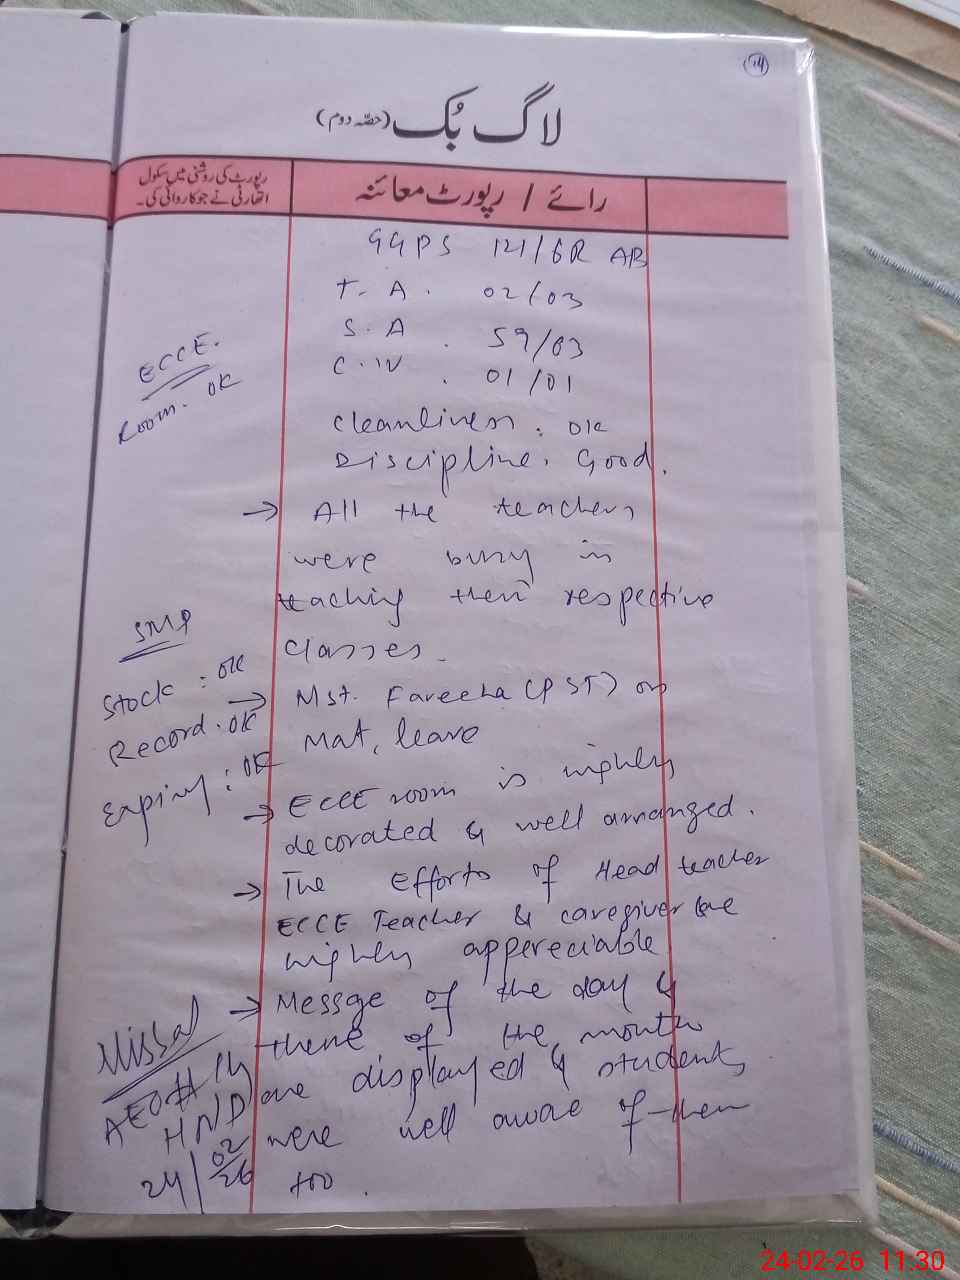 14
لاگ بُک (حصّہ دوم)
رائے / رپورٹ معائنہ
رپورٹ کی روشنی میں سکول
اتھارٹی نے جو کاروائی کی۔
GGPS 121/6R AB
T. A. 02/03
S. A. 59/63
C. IV. 01/01
Cleanliness: OK
Discipline. Good.
→ All the teachers
were busy in
teaching their respective
classes.
→ Mst. Fareeha (PST) on
Mat. leave
→ ECCE room is highly
decorated & well arranged.
→ The Efforts of Head teacher
ECCE Teacher & caregiver are
highly appereciable
→ Messge of the day &
theme of the month
are displayed & students
were well aware of them
too.
ECCE.
Room. OK
SMP
Stock: OK
Record. OK
Expiry: OK
AEO# 14
HND
24/02/26
24-02-26 11:30